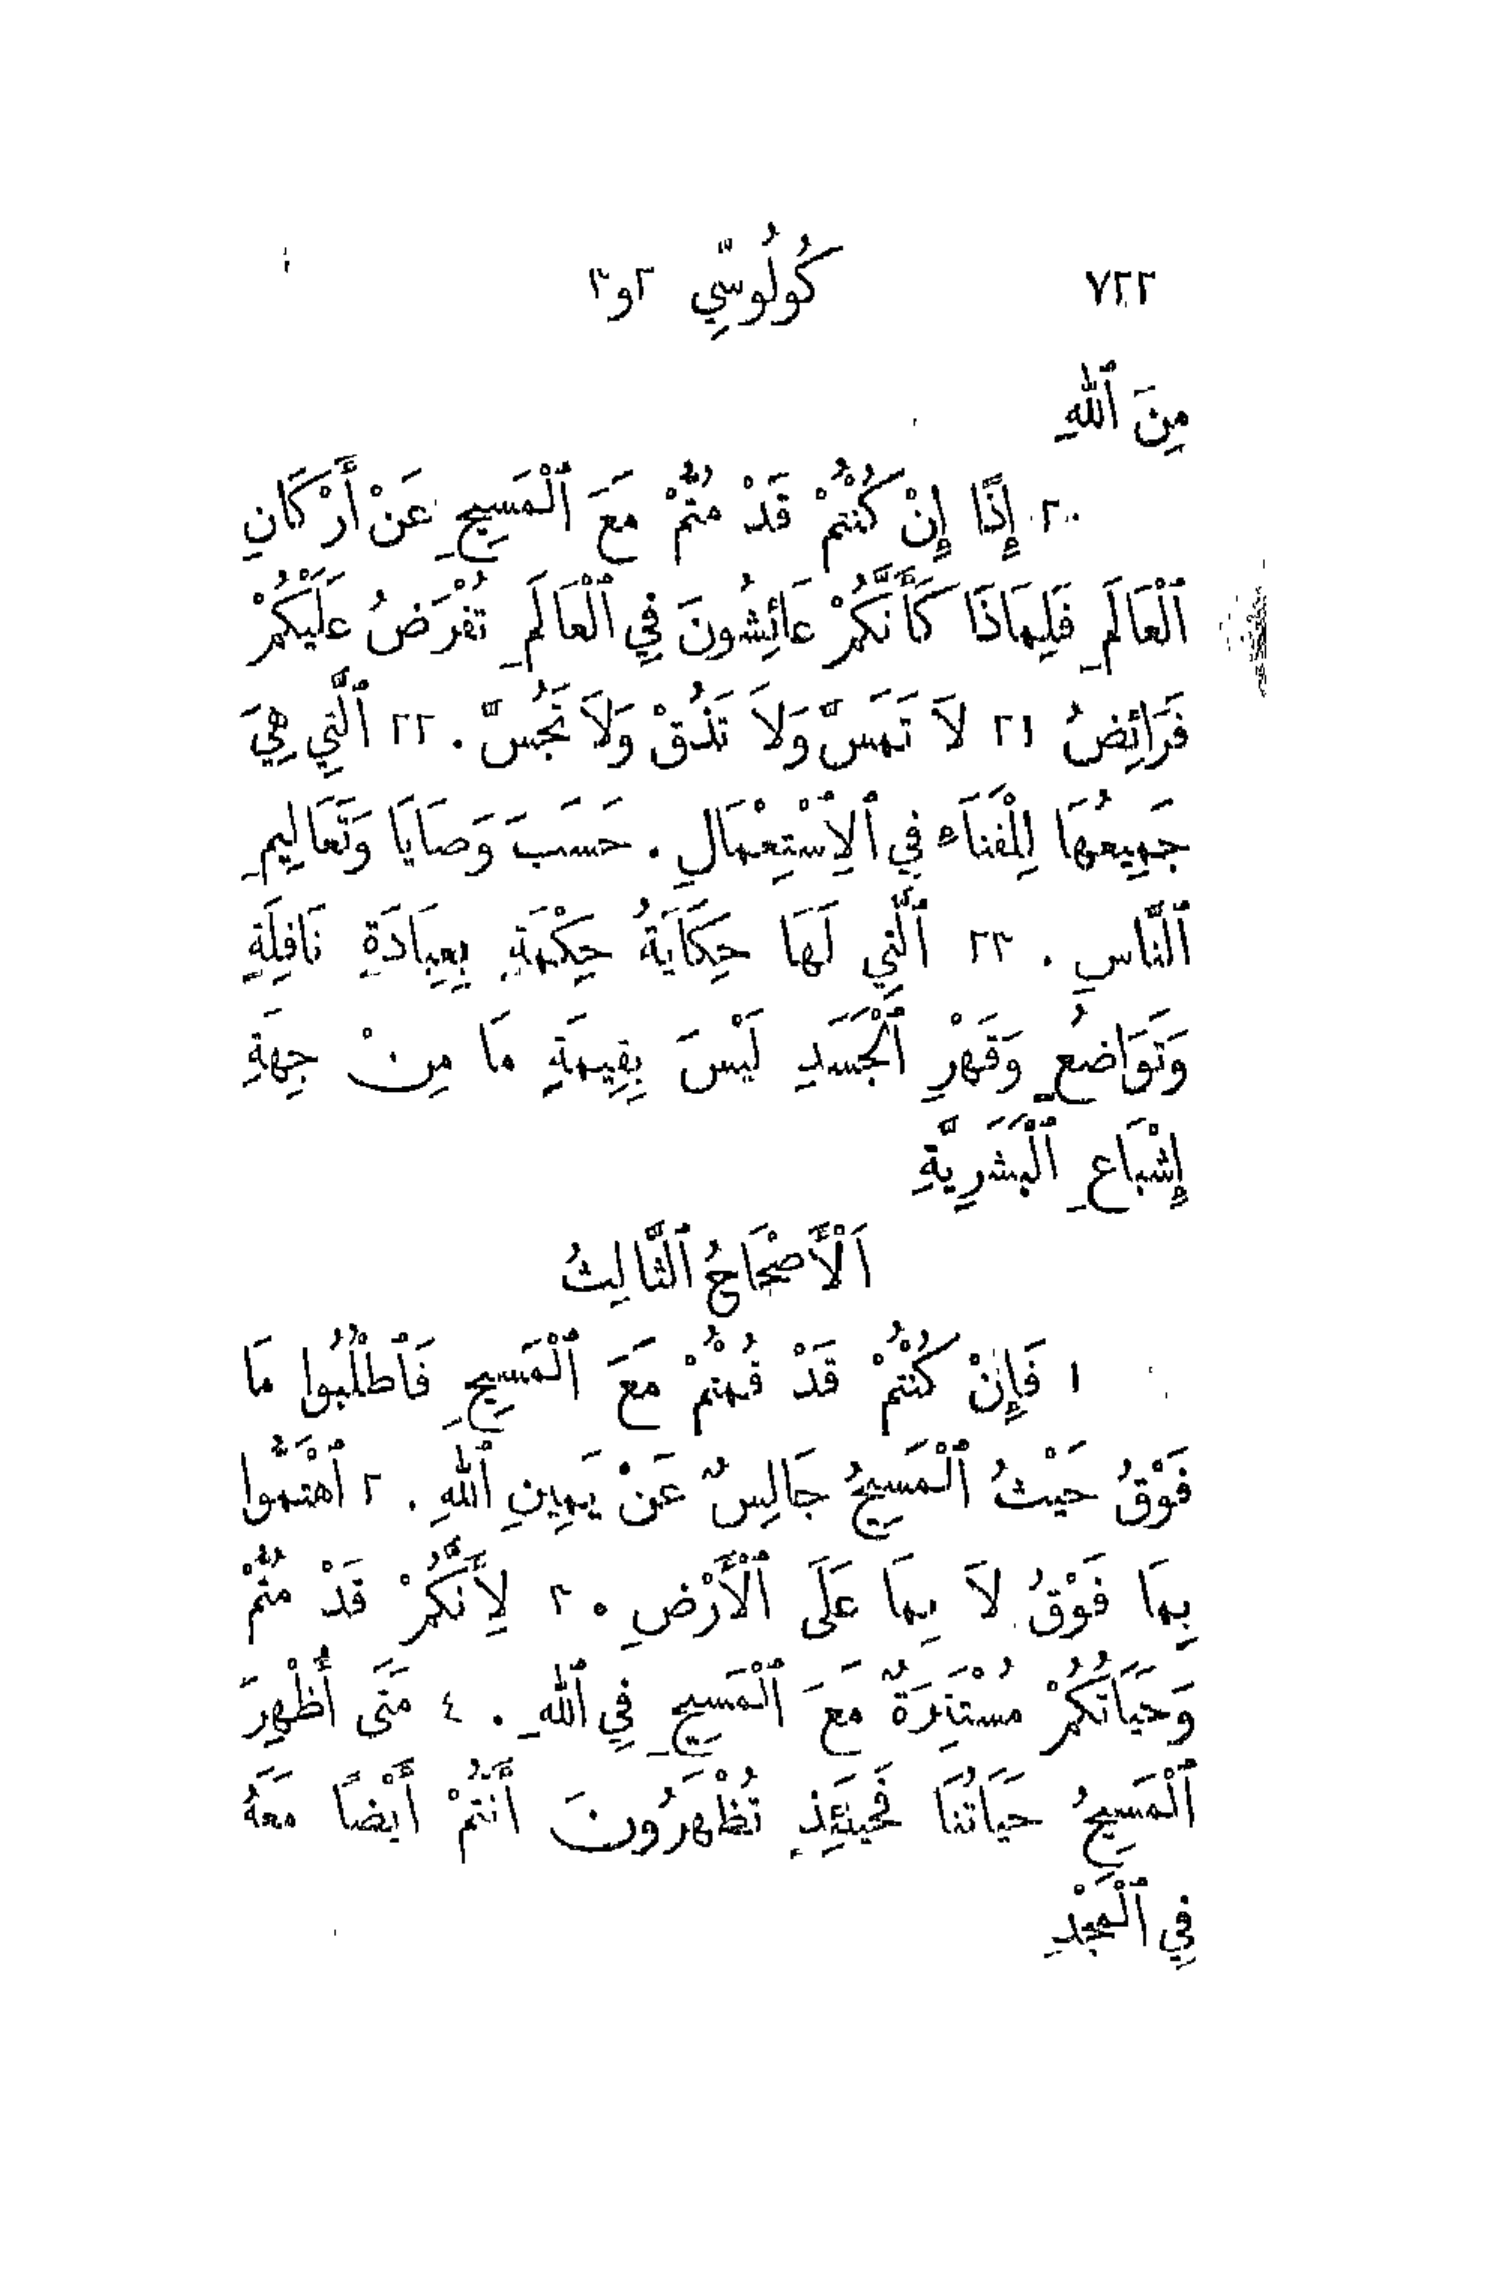 ٧٢٢ كُولُوسِّي ٢و٣
مِنَ ٱللهِ
٢٠ إِذًا إِنْ كُنْتُمْ قَدْ مُتُّمْ مَعَ ٱلْمَسِيحِ عَنْ أَرْكَانِ
ٱلْعَالَمِ فَلِمَاذَا كَأَنَّكُمْ عَائِشُونَ فِي ٱلْعَالَمِ تُفْرَضُ عَلَيْكُمْ
فَرَائِضُ ٢١ لاَ تَمَسَّ وَلاَ تَذُقْ وَلاَ تَجُسَّ . ٢٢ ٱلَّتِي هِيَ
جَمِيعُهَا لِلْفَنَاءِ فِي ٱلِٱسْتِعْمَالِ . حَسَبَ وَصَايَا وَتَعَالِيمِ
ٱلنَّاسِ . ٢٣ ٱلَّتِي لَهَا حِكَايَةُ حِكْمَةٍ بِعِبَادَةٍ نَافِلَةٍ
وَتَوَاضُعٍ وَقَهْرِ ٱلْجَسَدِ لَيْسَ بِقِيمَةٍ مَا مِنْ جِهَةِ
إِشْبَاعِ ٱلْبَشَرِيَّةِ
اَلْأَصْحَاحُ ٱلثَّالِثُ
١ فَإِنْ كُنْتُمْ قَدْ قُمْتُمْ مَعَ ٱلْمَسِيحِ فَٱطْلُبُوا مَا
فَوْقُ حَيْثُ ٱلْمَسِيحُ جَالِسٌ عَنْ يَمِينِ ٱللهِ . ٢ ٱهْتَمُّوا
بِمَا فَوْقُ لاَ بِمَا عَلَى ٱلْأَرْضِ . ٣ لِأَنَّكُمْ قَدْ مُتُّمْ
وَحَيَاتُكُمْ مُسْتَتِرَةٌ مَعَ ٱلْمَسِيحِ فِي ٱللهِ . ٤ مَتَى أُظْهِرَ
ٱلْمَسِيحُ حَيَاتُنَا فَحِينَئِذٍ تُظْهَرُونَ أَنْتُمْ أَيْضًا مَعَهُ
فِي ٱلْمَجْدِ